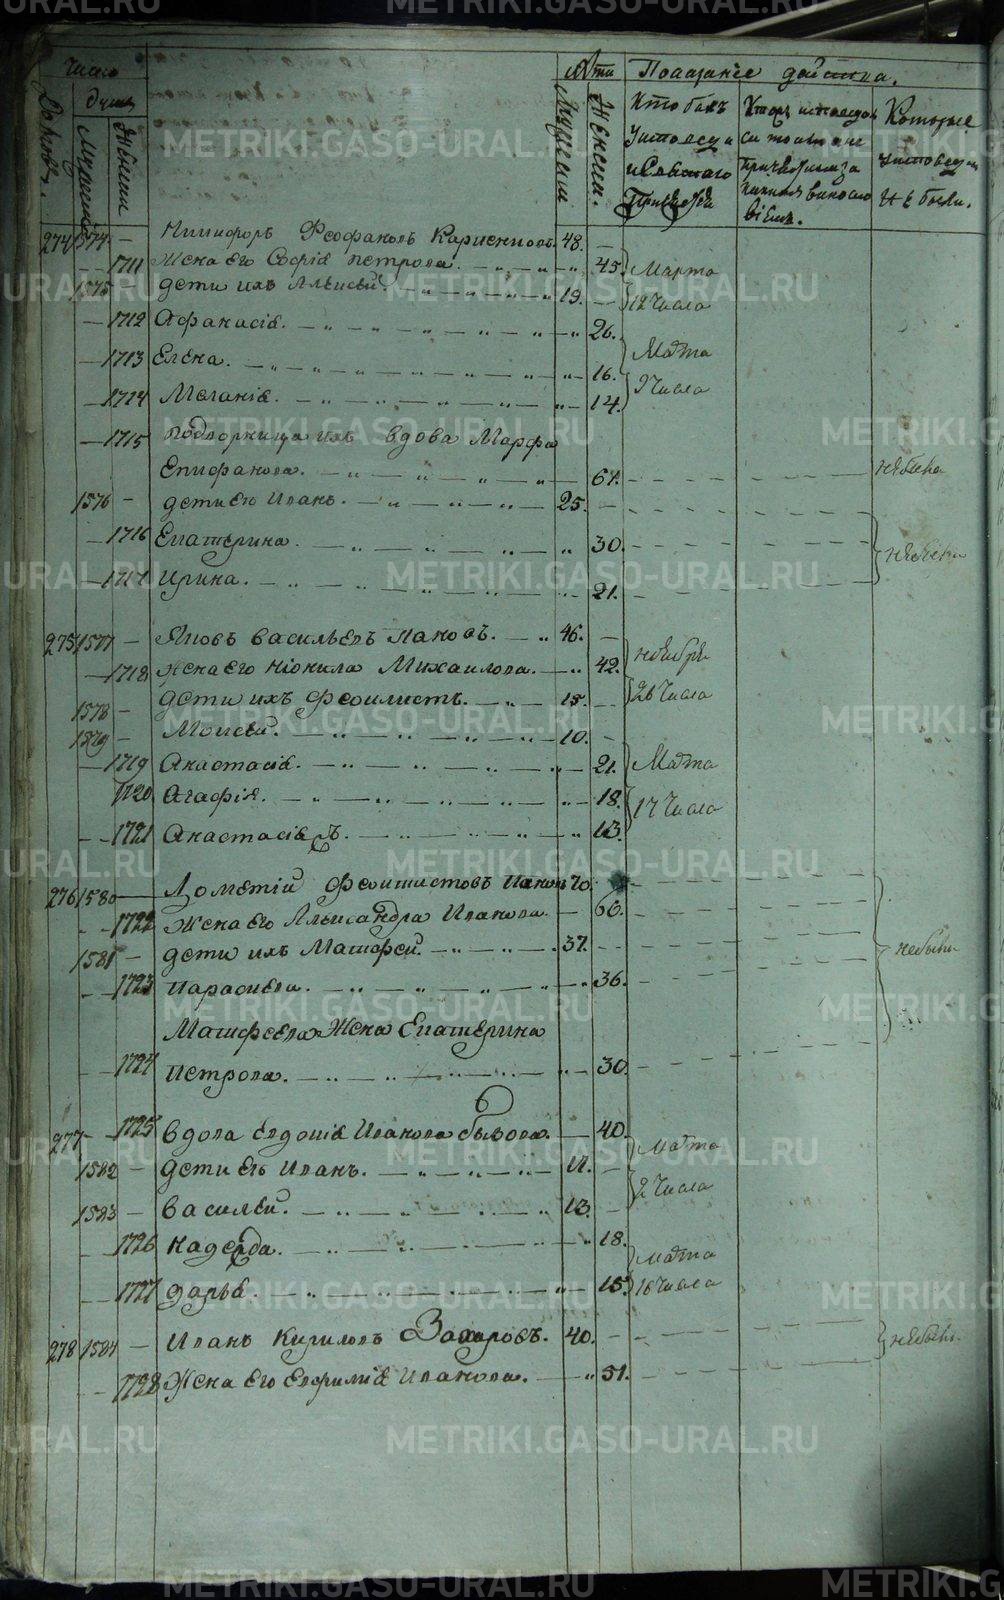 Число
Лѣта
Показанїе дѣйства.
душъ
Мужеска
Женска
Мужеска
Женска.
Кто былъ
у исповеди
и Святаго
Причастїя
Которые
исповеди
не были.
274 1574. — Никифоръ Феофановъ 48. —
1711 Жена его Софїя Петрова. 45. Марта
1575 — дети ихъ Алексѣй 19. — 12 числа
— 1712 Афанасїя. 26.
— 1713 Елена. 16. Марта
— 1714 Меланїя. 14. 9 числа
— 1715 подворница ихъ вдова Марфа
Епифанова. 67. небыла
1576 — дети ея Иванъ. 25. —
— 1716 Екатерина. 30. небыли
— 1717 Ирина. 21.
275 1577 — Яковъ Васильевъ Пановъ. 46. —
— 1718 жена его Нїонила Михаилова. 42. ноября
1578 — дети ихъ Феоклистъ. 15. 26 числа
1579 — Моисей. 10. —
— 1719 Анастасїя. 21. Марта
1720 Агафїя. 18. 17 числа
— 1721 Анастасїя 13.
276 1580 — Дометїй Феоктистовъ Пановъ 70.
— 1722 жена его Александра Иванова. 60.
1581 — дети ихъ Матфей. 37. небыли
— 1723 Парасковья. 36.
Матфеева жена Екатерина
— 1724 Петрова. 30.
277 — 1725 вдова Евдокїя Иванова Быкова. 40. Марта
1582 — дети ея Иванъ. 17. — 2 числа
1583 — Василей. 13. —
— 1726 Надежда. 18. марта
— 1727 Дарья. 15. 16 числа
278 1584 — Иванъ Кириловъ Захаровъ. 40. небыли
— 1728 Жена его Евфимїя Иванова. 51.
METRIKI.GASO-URAL.RU